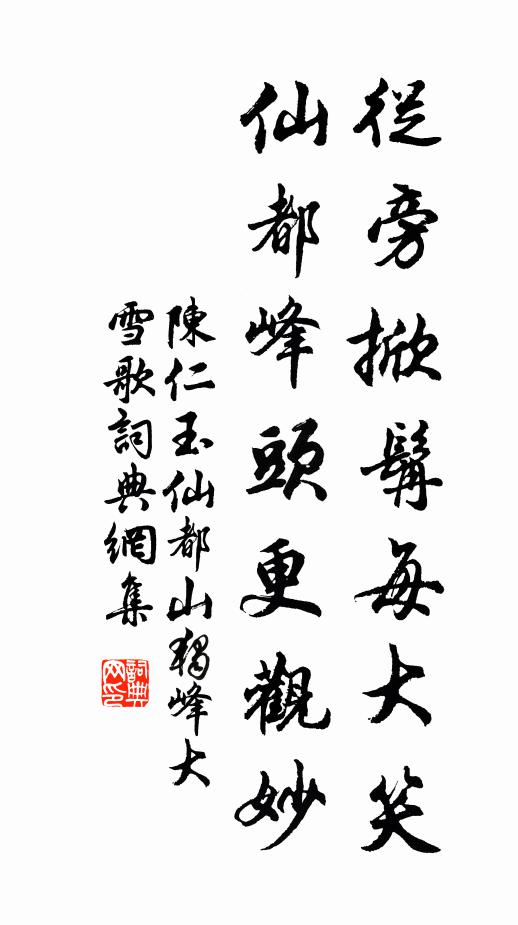 從旁掀髯每大笑
仙都峰頭更觀妙
陳仁玉仙都山獨峰大
雪歌詞典網集
詞典
网印